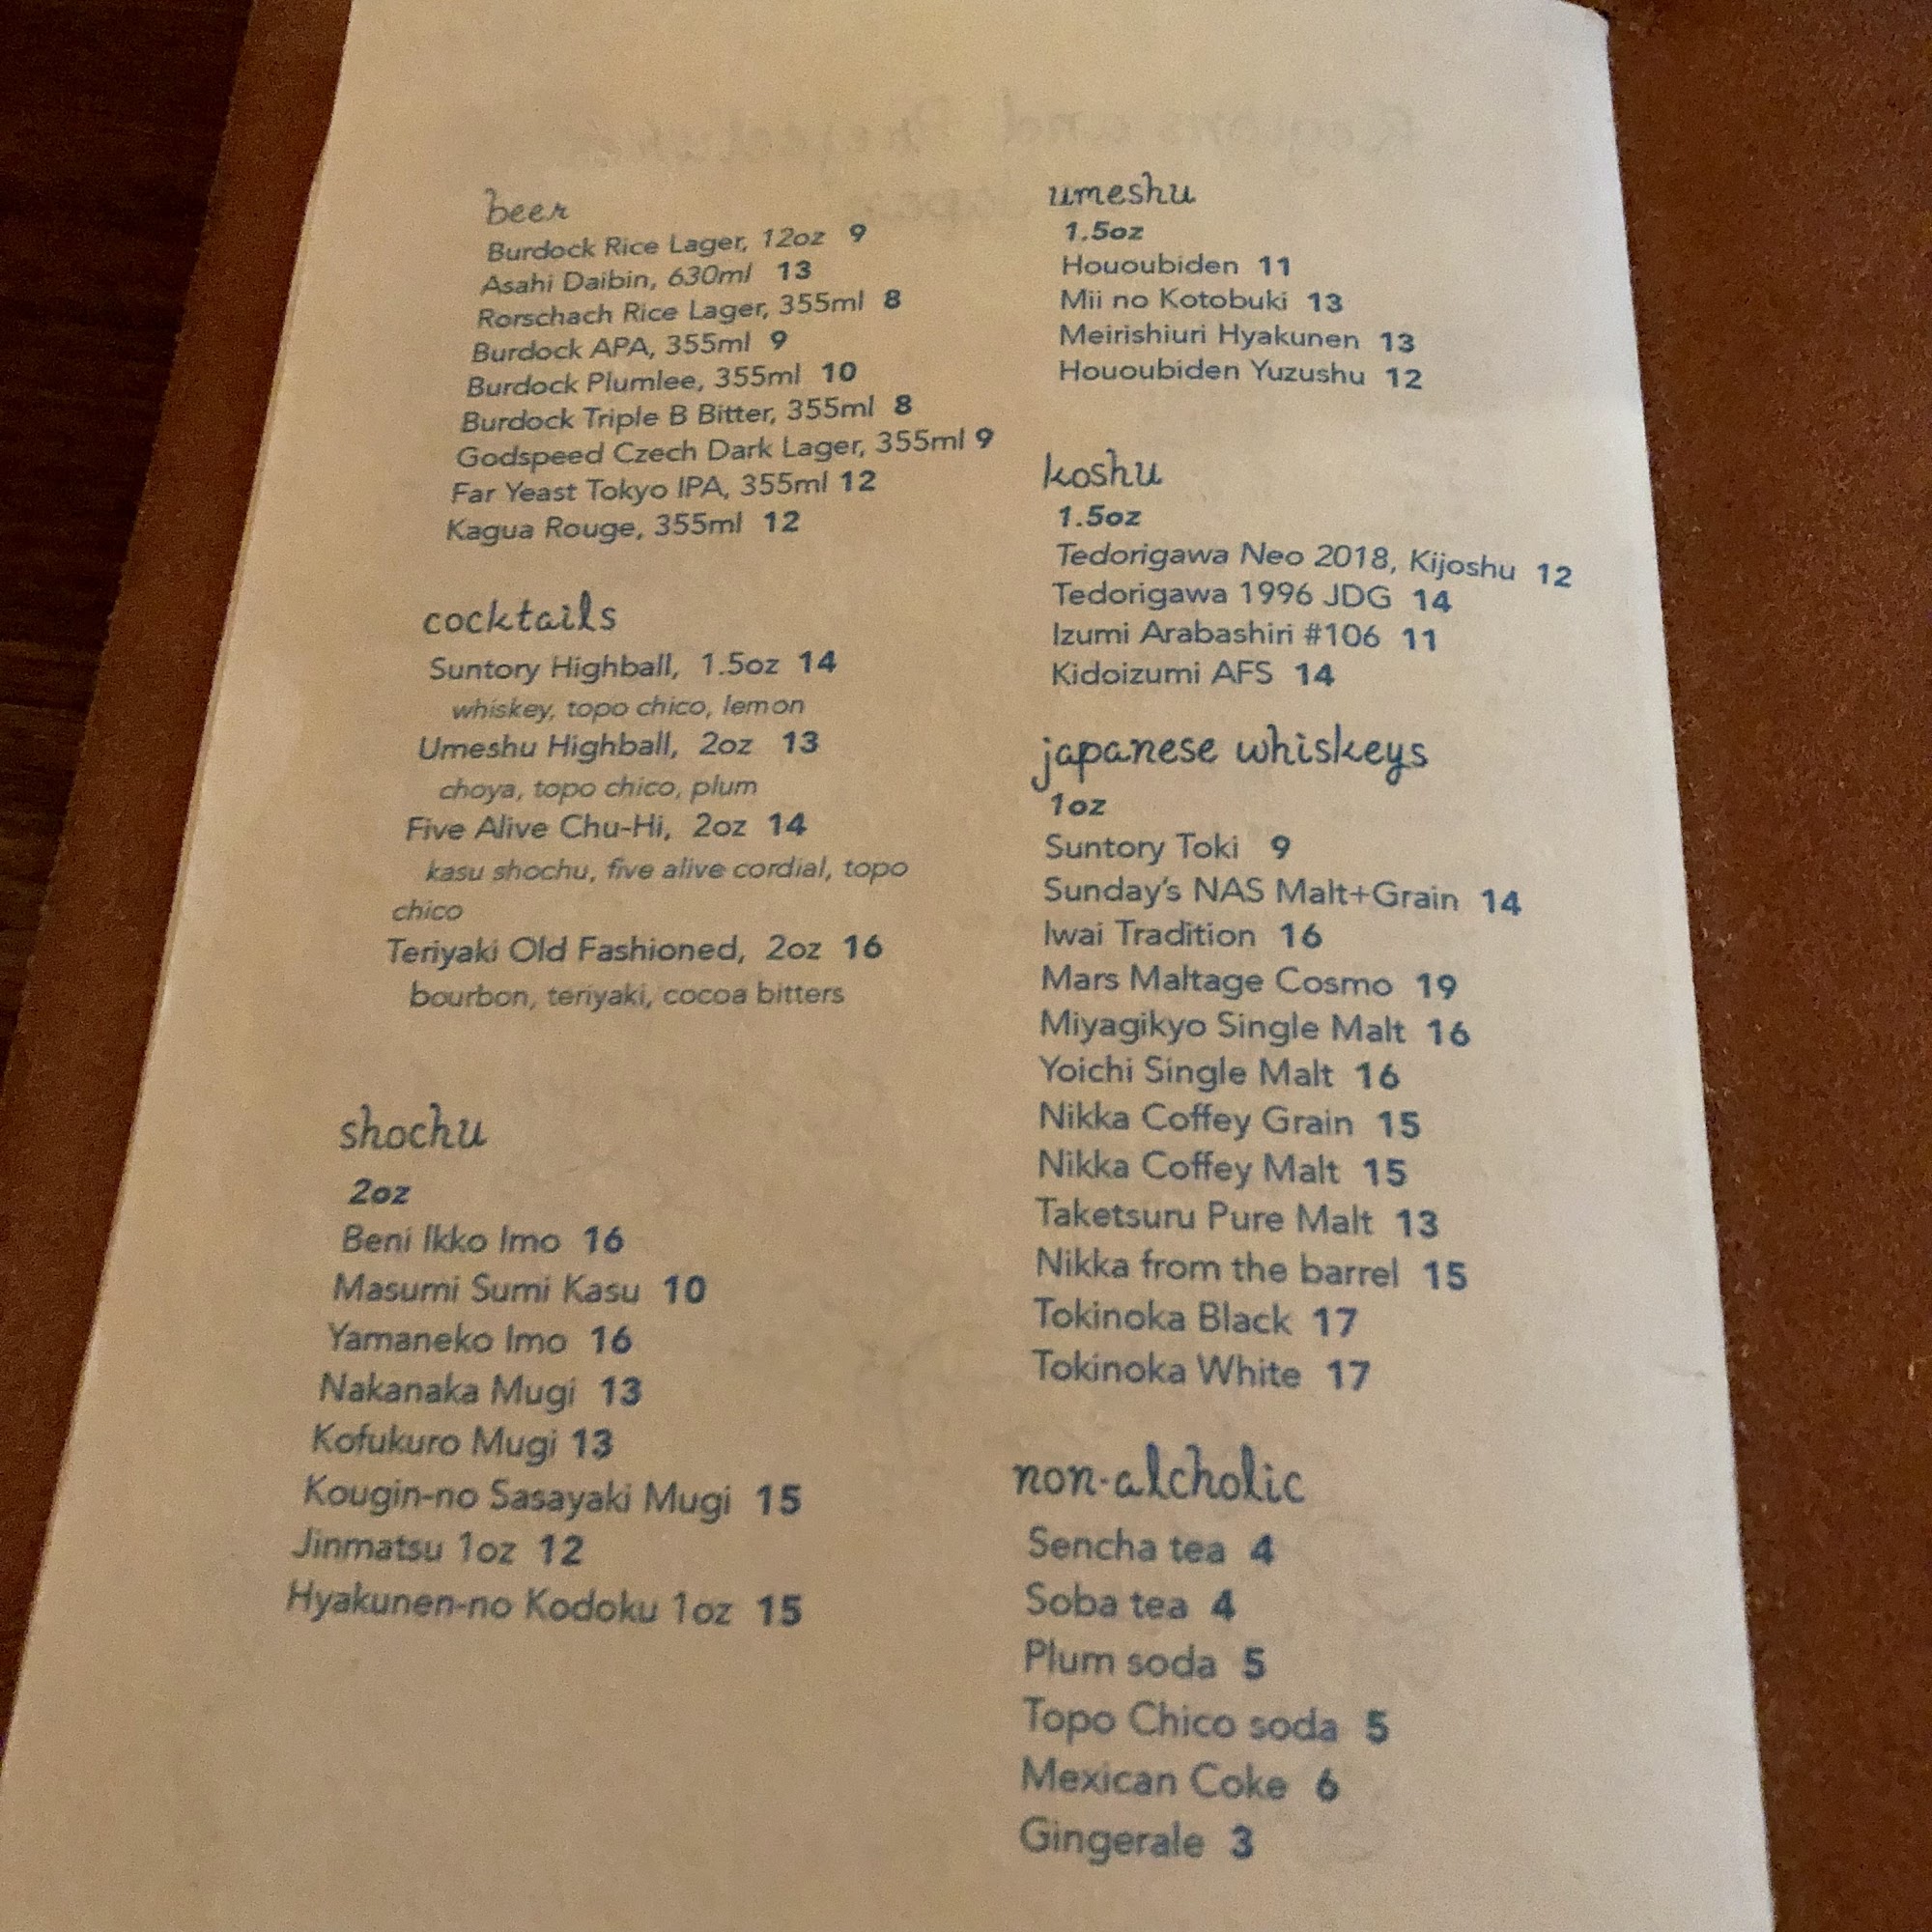 beer
Burdock Rice Lager, 12oz 9
Asahi Daibin, 630ml 13
Rorschach Rice Lager, 355ml 8
Burdock APA, 355ml 9
Burdock Plumlee, 355ml 10
Burdock Triple B Bitter, 355ml 8
Godspeed Czech Dark Lager, 355ml 9
Far Yeast Tokyo IPA, 355ml 12
Kagua Rouge, 355ml 12
cocktails
Suntory Highball, 1.5oz 14
whiskey, topo chico, lemon
Umeshu Highball, 2oz 13
choya, topo chico, plum
Five Alive Chu-Hi, 2oz 14
kasu shochu, five alive cordial, topo
chico
Teriyaki Old Fashioned, 2oz 16
bourbon, teriyaki, cocoa bitters
shochu
2oz
Beni Ikko Imo 16
Masumi Sumi Kasu 10
Yamaneko Imo 16
Nakanaka Mugi 13
Kofukuro Mugi 13
Kougin-no Sasayaki Mugi 15
Jinmatsu 1oz 12
Hyakunen-no Kodoku 1oz 15
umeshu
1.5oz
Hououbiden 11
Mii no Kotobuki 13
Meirishiuri Hyakunen 13
Hououbiden Yuzushu 12
koshu
1.5oz
Tedorigawa Neo 2018, Kijoshu 12
Tedorigawa 1996 JDG 14
Izumi Arabashiri #106 11
Kidoizumi AFS 14
japanese whiskeys
1oz
Suntory Toki 9
Sunday's NAS Malt+Grain 14
Iwai Tradition 16
Mars Maltage Cosmo 19
Miyagikyo Single Malt 16
Yoichi Single Malt 16
Nikka Coffey Grain 15
Nikka Coffey Malt 15
Taketsuru Pure Malt 13
Nikka from the barrel 15
Tokinoka Black 17
Tokinoka White 17
non-alcholic
Sencha tea 4
Soba tea 4
Plum soda 5
Topo Chico soda 5
Mexican Coke 6
Gingerale 3